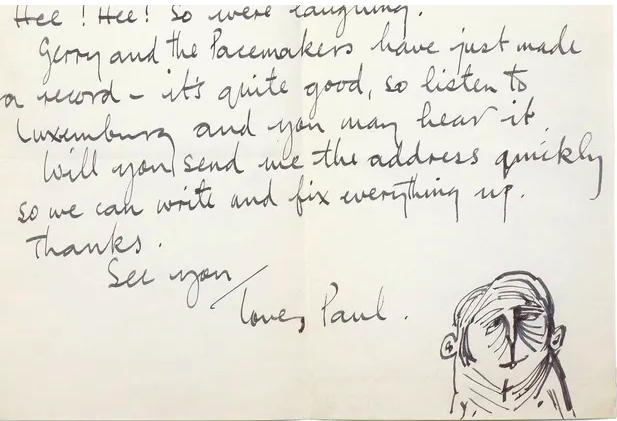 Hee! Hee! So were laughing.
Gerry and the Pacemakers have just made
a record - it's quite good, so listen to
Luxemburg and you may hear it.
Will you send me the address quickly
so we can write and fix everything up.
Thanks.
See you
Love, Paul.